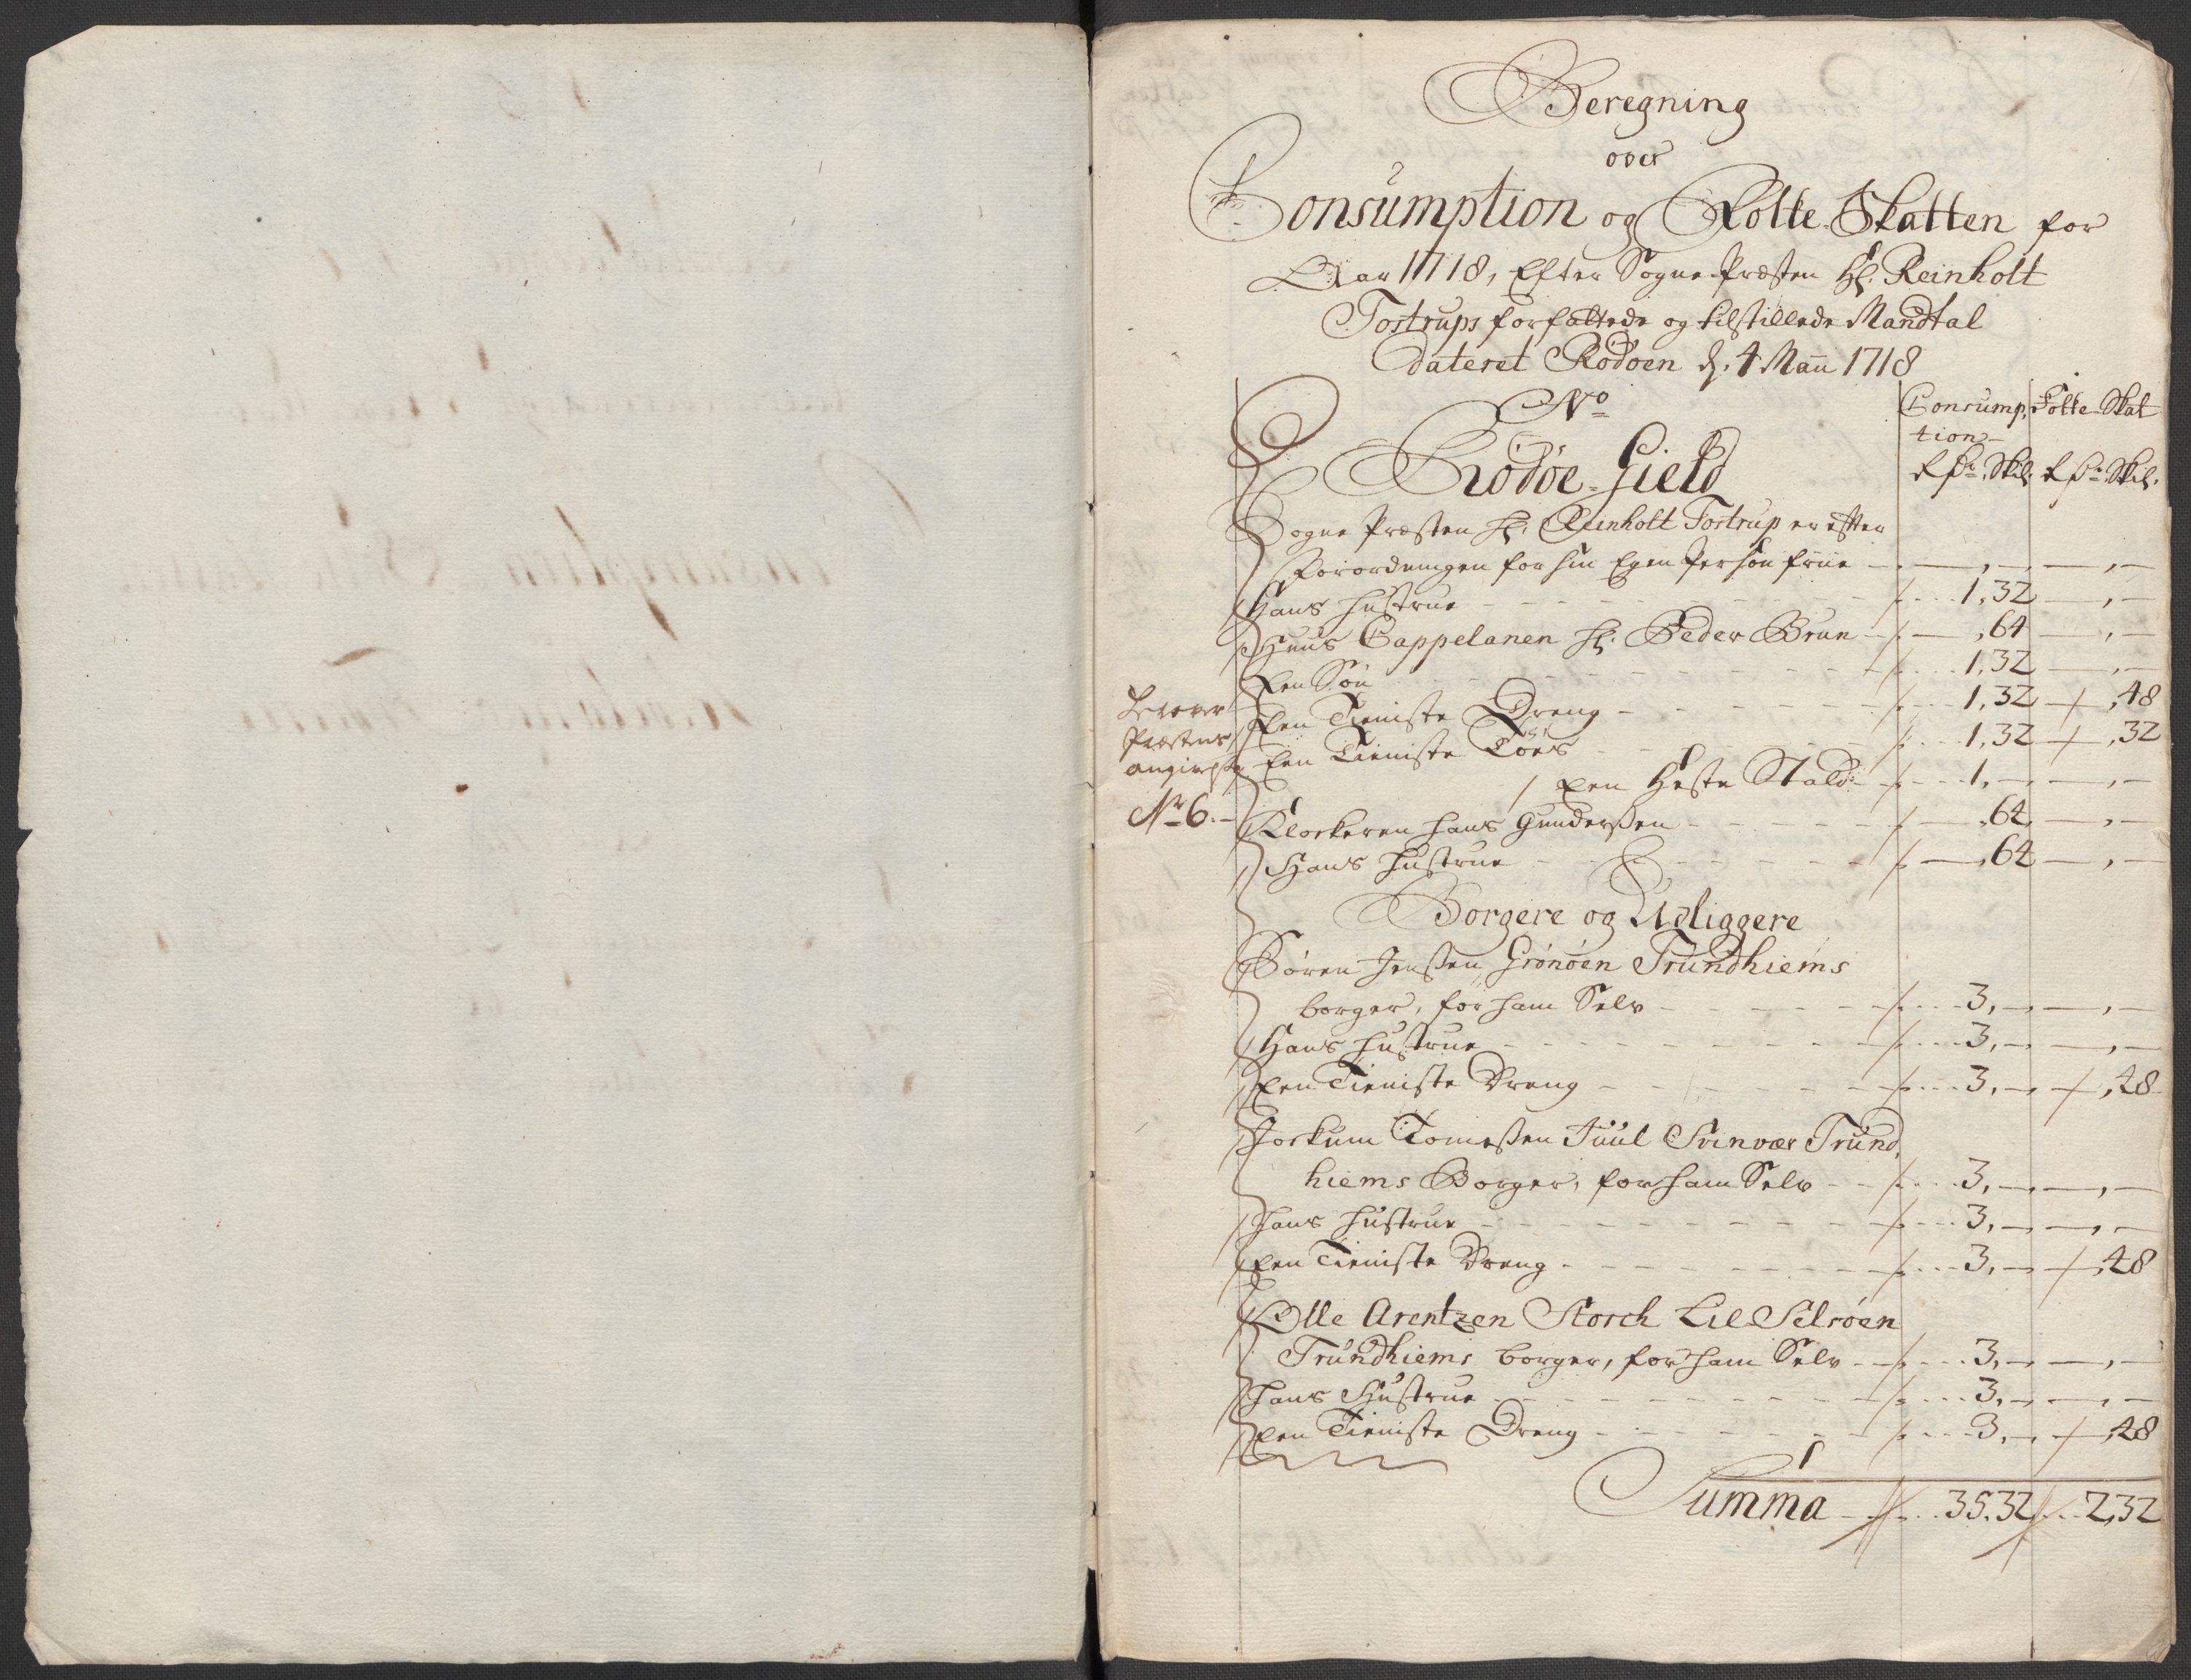 Beregning
over
Consumption og Folke-Skatten for
Aar 1718, Efter Sogne-Præsten Hl. Reinholt
Tostrups forfattede og tilstillede Mandtal
dateret Rodøen d. 4 Maii 1718
No
Consump-
tion
Folke-Skat
Rdr. Skil.
Rdr. Skil.
Rodøe-Gield
Sogne Præsten Hl. Reinholt Tostrup er efter
Forordningen for sin Egen Person friie - , - - , -
Hans Hustrue - 1, 32 - , -
Huus Cappelanen Hl. Peder Brun - , 64 - , -
Een Søn - 1, 32 - , -
Een Tieniste Dreng - 1, 32 - , 48
Een Tieniste Tøes - 1, 32 - , 32
Præstens
No 6.
Een Heste Stald - 1, - - , -
Klockeren Hans Gunderßen - , 64 - , -
Hans Hustrue - , 64 - , -
Borgere og Udliggere
Søren Jenßen Grønøen Trundhiems
borger, for ham Selv - 3, - - , -
Hans Hustrue - 3, - - , -
Een Tieniste Dreng - 3, - - , 48
Jockum Tomeßen Juul Svinvær Trund,
hiems Borger, for ham Selv - 3, - - , -
Hans Hustrue - 3, - - , -
Een Tieniste Dreng - 3, - - , 48
Olle Arentzen Storch Lil Selsøen
Trundhiems borger, for ham Selv - 3, - - , -
Hans Hustrue - 3, - - , -
Een Tieniste Dreng - 3, - - , 48
Summa - 35. 32 - 2, 32